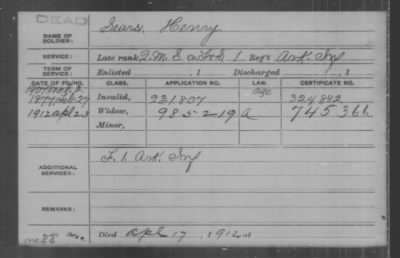 DEAD
NAME OF SOLDIER:
Sears, Henry
SERVICE:
Late rank Q.M.S. Co. F&S, 1 Reg't Ark Inf
TERM OF SERVICE:
Enlisted , 1 Discharged , 1
DATE OF FILING. CLASS. APPLICATION NO. LAW. CERTIFICATE NO.
Invalid, 221.807 Age 324892
1912 Apl 23 Widow, 985219 A 745366
Minor,
ADDITIONAL SERVICES:
F. 1. Ark. Inf
REMARKS:
Died Apl 17, 1912 at